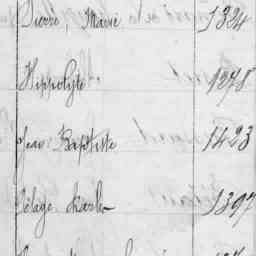 Pierre, Marie 1324
Hippolyte 1278
Jean Baptiste 1423
Pélage Charles 1397